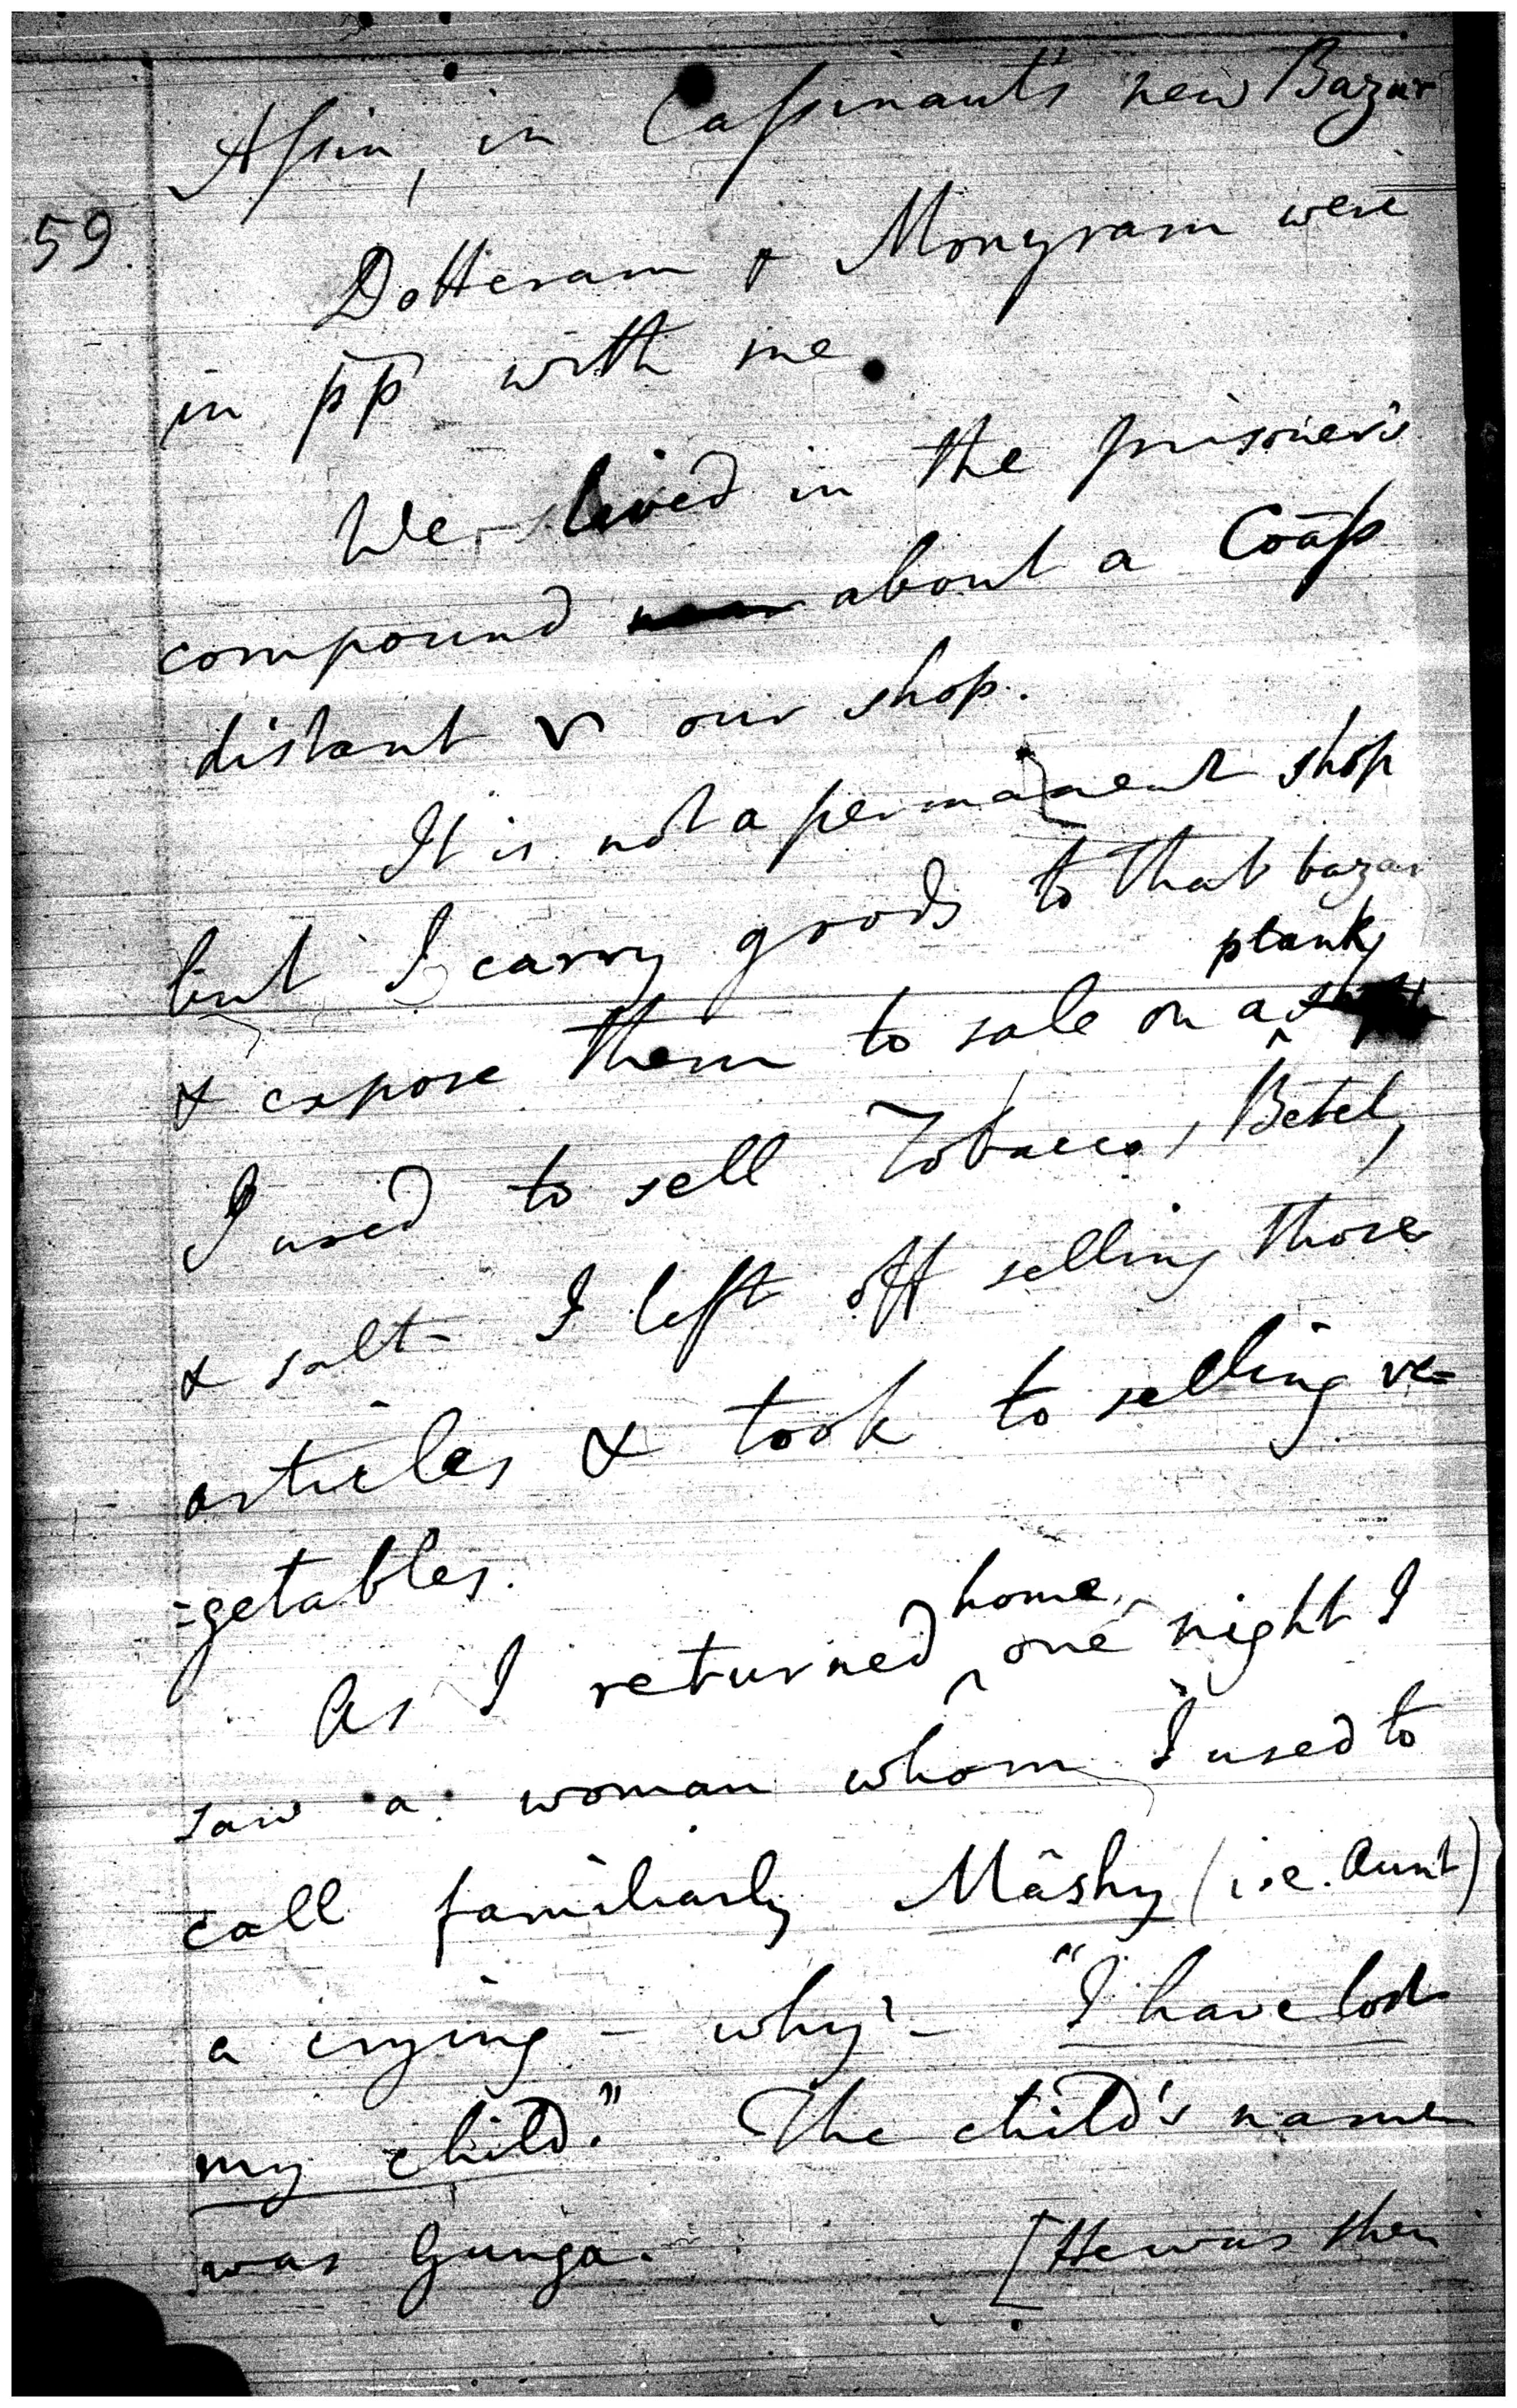 Assin, in Cassinaut's new Bazar
59.
Dotteram & Monyram were
in p̄p̄ with me.
We lived in the prisoner's
compound about a Coass
distant our shop.
It is not a permanent shop
but I carry goods to that bazar
plank
& expose them to sale on a
I used to sell Tobacco, Betel,
& salt - I left off selling those
articles & took to selling ve=
=getables.
home
As I returned one night I
saw a woman whom I used to
call familiarly Mâshy (i.e. Aunt)
a crying - why? - "I have lost
my child." The child's name
was Gunga. [He was then